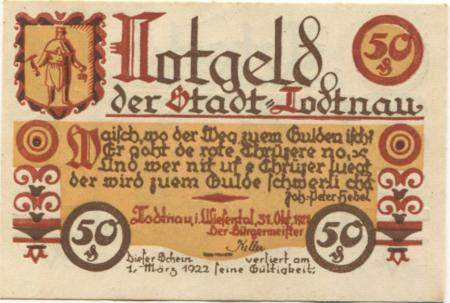 Notgeld
der Stadt Todtnau
50
₰
Waisch, wo der Weg zuem Gulden isch?
Er goht de rote Chrüzere no,
Und wer nit uf e Chrüzer luegt
der wird zuem Gulde schwerli cho
Joh. Peter Hebel
Todtnau i. Wiesental, 31. Okt. 1921
Der Bürgermeister
Keller
50
₰
50
₰
Dieser Schein verliert am
1. März 1922 seine Gültigkeit.